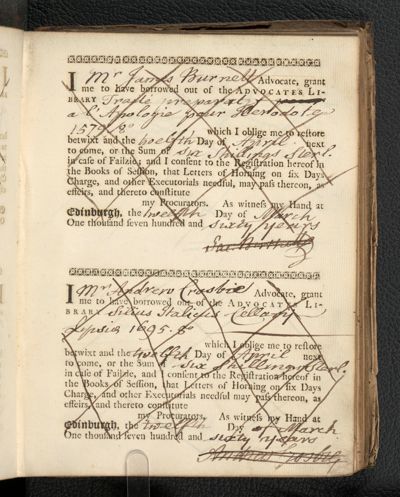 I Mr James Burnett Advocate, grant
me to have borrowed out of the ADVOCATES LI-
BRARY Traite preparatif
a l'Apologie pour Herodote
1579. 8º which I oblige me to restore
betwixt and the twelfth Day of April next
to come, or the Sum of six Shillings Sterl.
in case of Failzie; and I consent to the Registration hereof in
the Books of Session, that Letters of Horning on six Days
Charge, and other Executorials needful, may pass thereon, as
effeirs, and thereto constitute
my Procurators. As witness my Hand at
Edinburgh, the twelfth Day of March
One thousand seven hundred and sixty years
I Mr Andrew Crosbie Advocate, grant
me to have borrowed out of the ADVOCATES LI-
BRARY Silius Italicus Cellarij
Lipsiæ 1695. 8º
which I oblige me to restore
betwixt and the twelfth Day of April next
to come, or the Sum of six shillings sterl.
in case of Failzie; and I consent to the Registration hereof in
the Books of Session, that Letters of Horning on six Days
Charge, and other Executorials needful may pass thereon, as
effeirs, and thereto constitute
my Procurators. As witness my Hand at
Edinburgh, the twelfth Day of March
One thousand seven hundred and sixty years
Andrew Crosbie